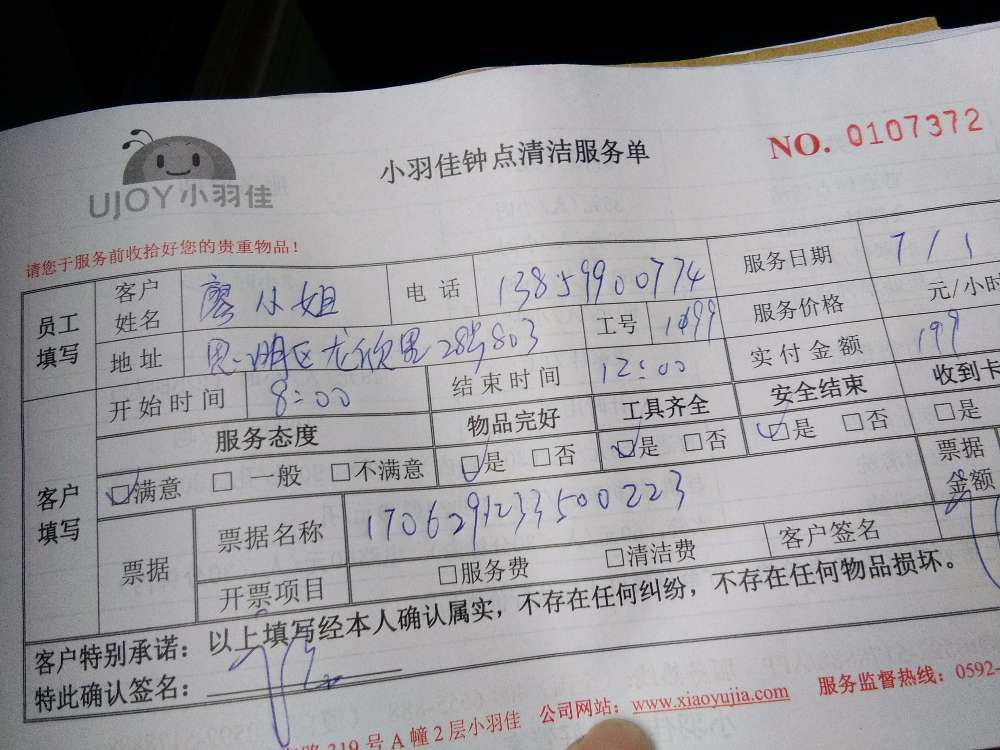 UJOY小羽佳
小羽佳钟点清洁服务单
NO. 0107372
请您于服务前收拾好您的贵重物品！
员工填写 客户姓名 廖小姐 电话 13859900774 服务日期 7/1
地址 思明区龙欣里 803 工号 服务价格 元/小时
开始时间 8:00 结束时间 12:00 实付金额 199
客户填写 服务态度 物品完好 工具齐全 安全结束 收到卡
☑满意 □一般 □不满意 ☑是 □否 ☑是 □否 ☑是 □否 □是
票据 票据名称 1706291233500223 票据金额
开票项目 □服务费 □清洁费 客户签名
客户特别承诺：以上填写经本人确认属实，不存在任何纠纷，不存在任何物品损坏。
特此确认签名：
319号A幢2层小羽佳 公司网站：www.xiaoyujia.com 服务监督热线：0592-